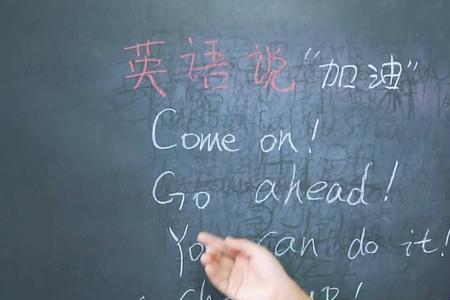 英语说“加油”
Come on!
Go ahead!
You can do it!